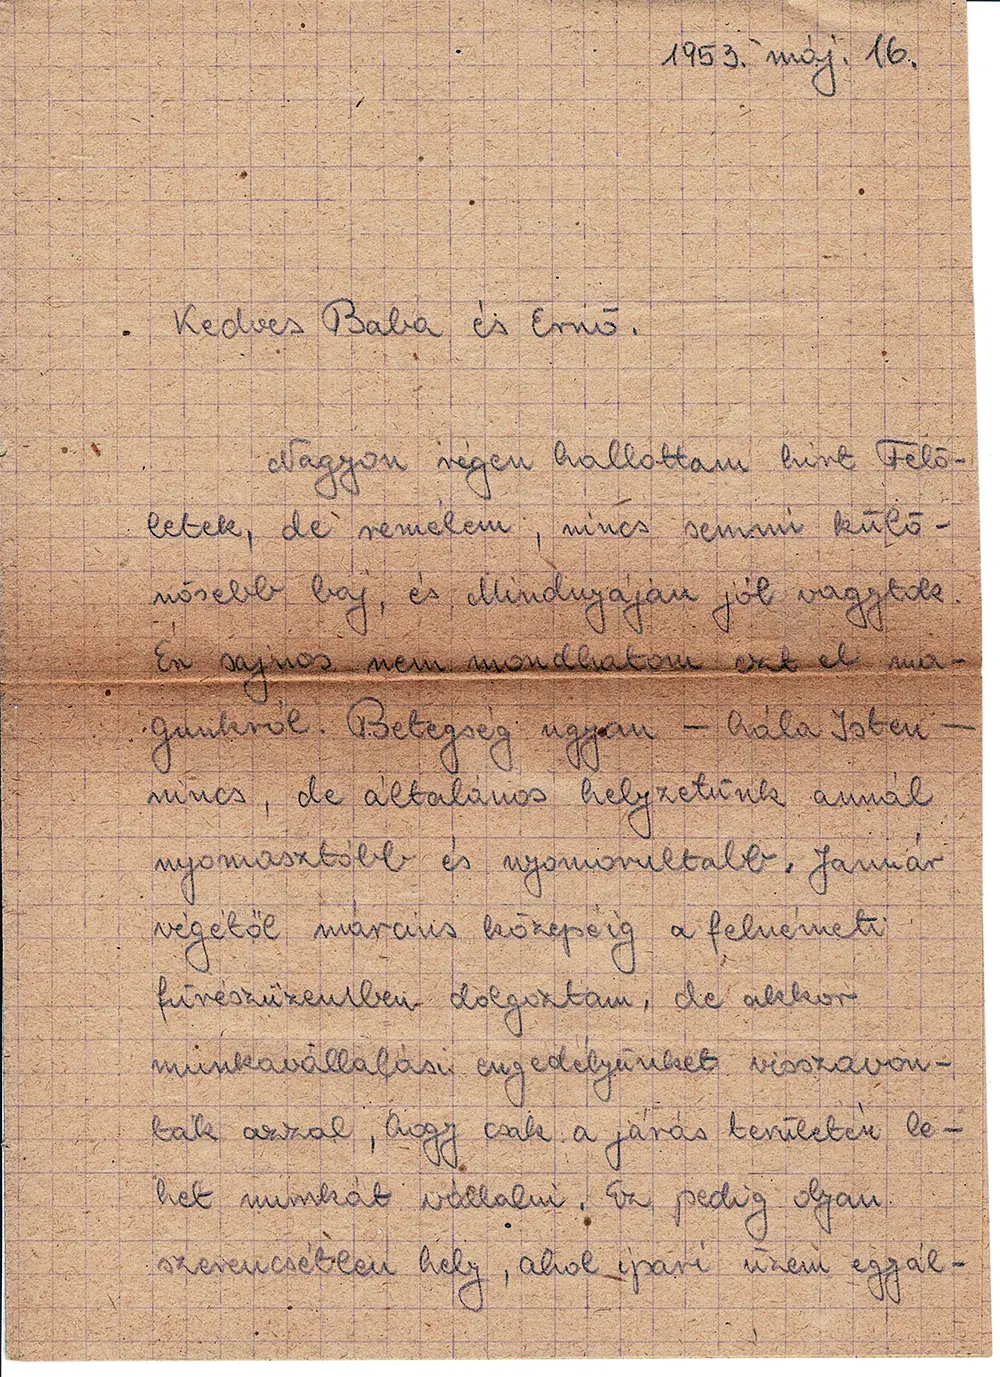 1953. máj. 16.
Kedves Baba és Ernő.
Nagyon régen hallottam hirt Felő-
letek, de remélem, nincs semmi külö-
nösebb baj, és Mindnyáján jól vagytok.
Én sajnos nem mondhatom ezt el ma-
gunkról. Betegség ugyan – hála Isten –
nincs, de általános helyzetünk annál
nyomasztóbb és nyomorultabb. Január
végétől március közepéig a felnémeti
fürészüzemben dolgoztam, de akkor
munkavállalási engedélyünket visszavon-
ták azzal, hogy csak a járás területén le-
het munkát vállalni. Ez pedig olyan
szerencsétlen hely, ahol ipari üzem egyál-